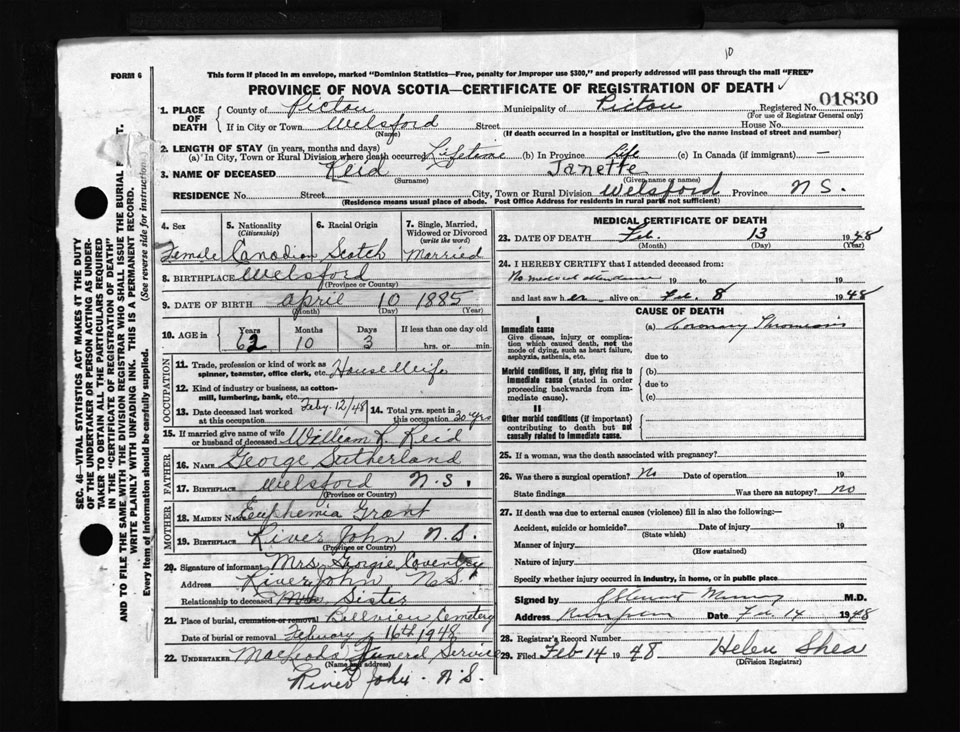 10
FORM 6
This form if placed in an envelope, marked "Dominion Statistics—Free, penalty for improper use $300," and properly addressed will pass through the mail "FREE"
PROVINCE OF NOVA SCOTIA—CERTIFICATE OF REGISTRATION OF DEATH
1. PLACE OF DEATH
County of Pictou Municipality of Pictou Registered No. 01830
(For use of Registrar General only)
If in City or Town Welsford Street House No.
(Name) (If death occurred in a hospital or institution, give the name instead of street and number)
2. LENGTH OF STAY (in years, months and days)
(a) In City, Town or Rural Division where death occurred Lifetime (b) In Province Life (c) In Canada (if immigrant) —
3. NAME OF DECEASED Reid Janette
(Surname) (Given name or names)
RESIDENCE No. Street City, Town or Rural Division Welsford Province N S.
(Residence means usual place of abode. Post Office Address for residents in rural parts not sufficient)
4. Sex 5. Nationality (Citizenship) 6. Racial Origin 7. Single, Married, Widowed or Divorced (write the word)
Female Canadian Scotch Married
8. BIRTHPLACE Welsford
(Province or Country)
9. DATE OF BIRTH April 10 1885
(Month) (Day) (Year)
10. AGE in Years Months Days If less than one day old
62 10 3 hrs. or min.
OCCUPATION
11. Trade, profession or kind of work as spinner, teamster, office clerk, etc. House Wife
12. Kind of industry or business, as cotton-mill, lumbering, bank, etc.
13. Date deceased last worked at this occupation Feby. 12/48 14. Total yrs. spent in this occupation 30 yrs
15. If married give name of wife or husband of deceased William K. Reid
FATHER
16. NAME George Sutherland
17. BIRTHPLACE Welsford N.S.
(Province or Country)
MOTHER
18. MAIDEN NAME Euphemia Grant
19. BIRTHPLACE River John N.S.
(Province or Country)
20. Signature of informant Mrs. Georgie Coventry
Address River John N.S.
Relationship to deceased Mrs Sister
21. Place of burial, cremation or removal Bellview Cemetery
Date of burial or removal February 16th 1948
22. UNDERTAKER MacLeods Funeral Service
(Name and address)
River John N.S.
MEDICAL CERTIFICATE OF DEATH
23. DATE OF DEATH Feb. 13 1948
(Month) (Day) (Year)
24. I HEREBY CERTIFY that I attended deceased from:
No medical attendance 19 to 19
and last saw h er alive on Feb. 8 1948
CAUSE OF DEATH
I
Immediate cause
Give disease, injury or complication which caused death, not the mode of dying, such as heart failure, asphyxia, asthenia, etc.
(a) Coronary Thrombosis
due to
Morbid conditions, if any, giving rise to immediate cause (stated in order proceeding backwards from immediate cause).
(b)
due to
(c)
II
Other morbid conditions (if important) contributing to death but not causally related to immediate cause.
25. If a woman, was the death associated with pregnancy?
26. Was there a surgical operation? No Date of operation 19
State findings Was there an autopsy? no
27. If death was due to external causes (violence) fill in also the following:—
Accident, suicide or homicide? Date of injury 19
(State which)
Manner of injury
(How sustained)
Nature of injury
Specify whether injury occurred in industry, in home, or in public place
Signed by M.D.
Address Date Feb. 14 1948
28. Registrar's Record Number
29. Filed Feb 14 1948 Helen Shea
(Division Registrar)
SEC. 46—VITAL STATISTICS ACT MAKES IT THE DUTY
OF THE UNDERTAKER OR PERSON ACTING AS UNDER-
TAKER TO OBTAIN ALL THE PARTICULARS REQUIRED
IN THE "CERTIFICATE OF REGISTRATION OF DEATH"
AND TO FILE THE SAME WITH THE DIVISION REGISTRAR WHO SHALL ISSUE THE BURIAL
WRITE PLAINLY WITH UNFADING INK. THIS IS A PERMANENT RECORD.
Every item of information should be carefully supplied. (See reverse side for instructions)